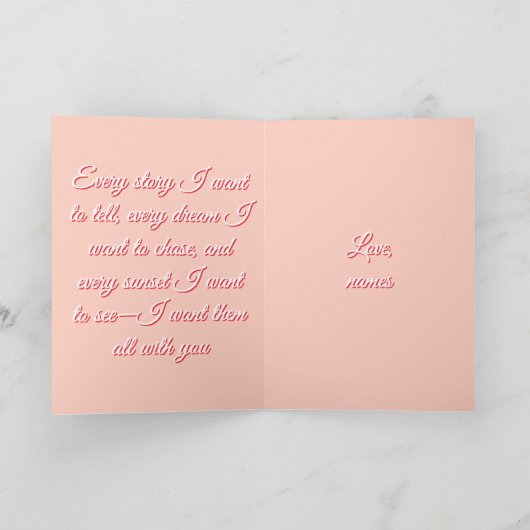 Every story I want
to tell, every dream I
want to chase, and
every sunset I want
to see—I want them
all with you
Love,
names